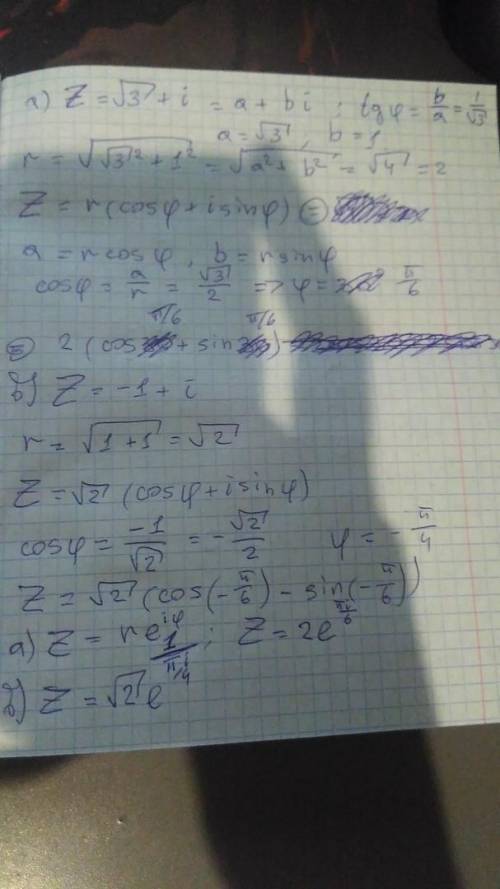 а) Z = √3 + i = a + bi ; tgφ = b/a = 1/√3
a = √3 , b = 1
r = √(√3² + 1²) = √(a² + b²) = √4 = 2
Z = r(cosφ + i sinφ) =
a = r cosφ , b = r sinφ
cosφ = a/r = √3/2 => φ = π/6
π/6 π/6
= 2 (cos + sin )
б) Z = -1 + i
r = √(1+1) = √2
Z = √2 (cosφ + i sinφ)
cosφ = -1/√2 = -√2/2 φ = -π/4
Z = √2 (cos(-π/6) - sin(-π/6))
а) Z = re^iφ ; Z = 2e^πi/6
б) Z = √2 e^πi/4